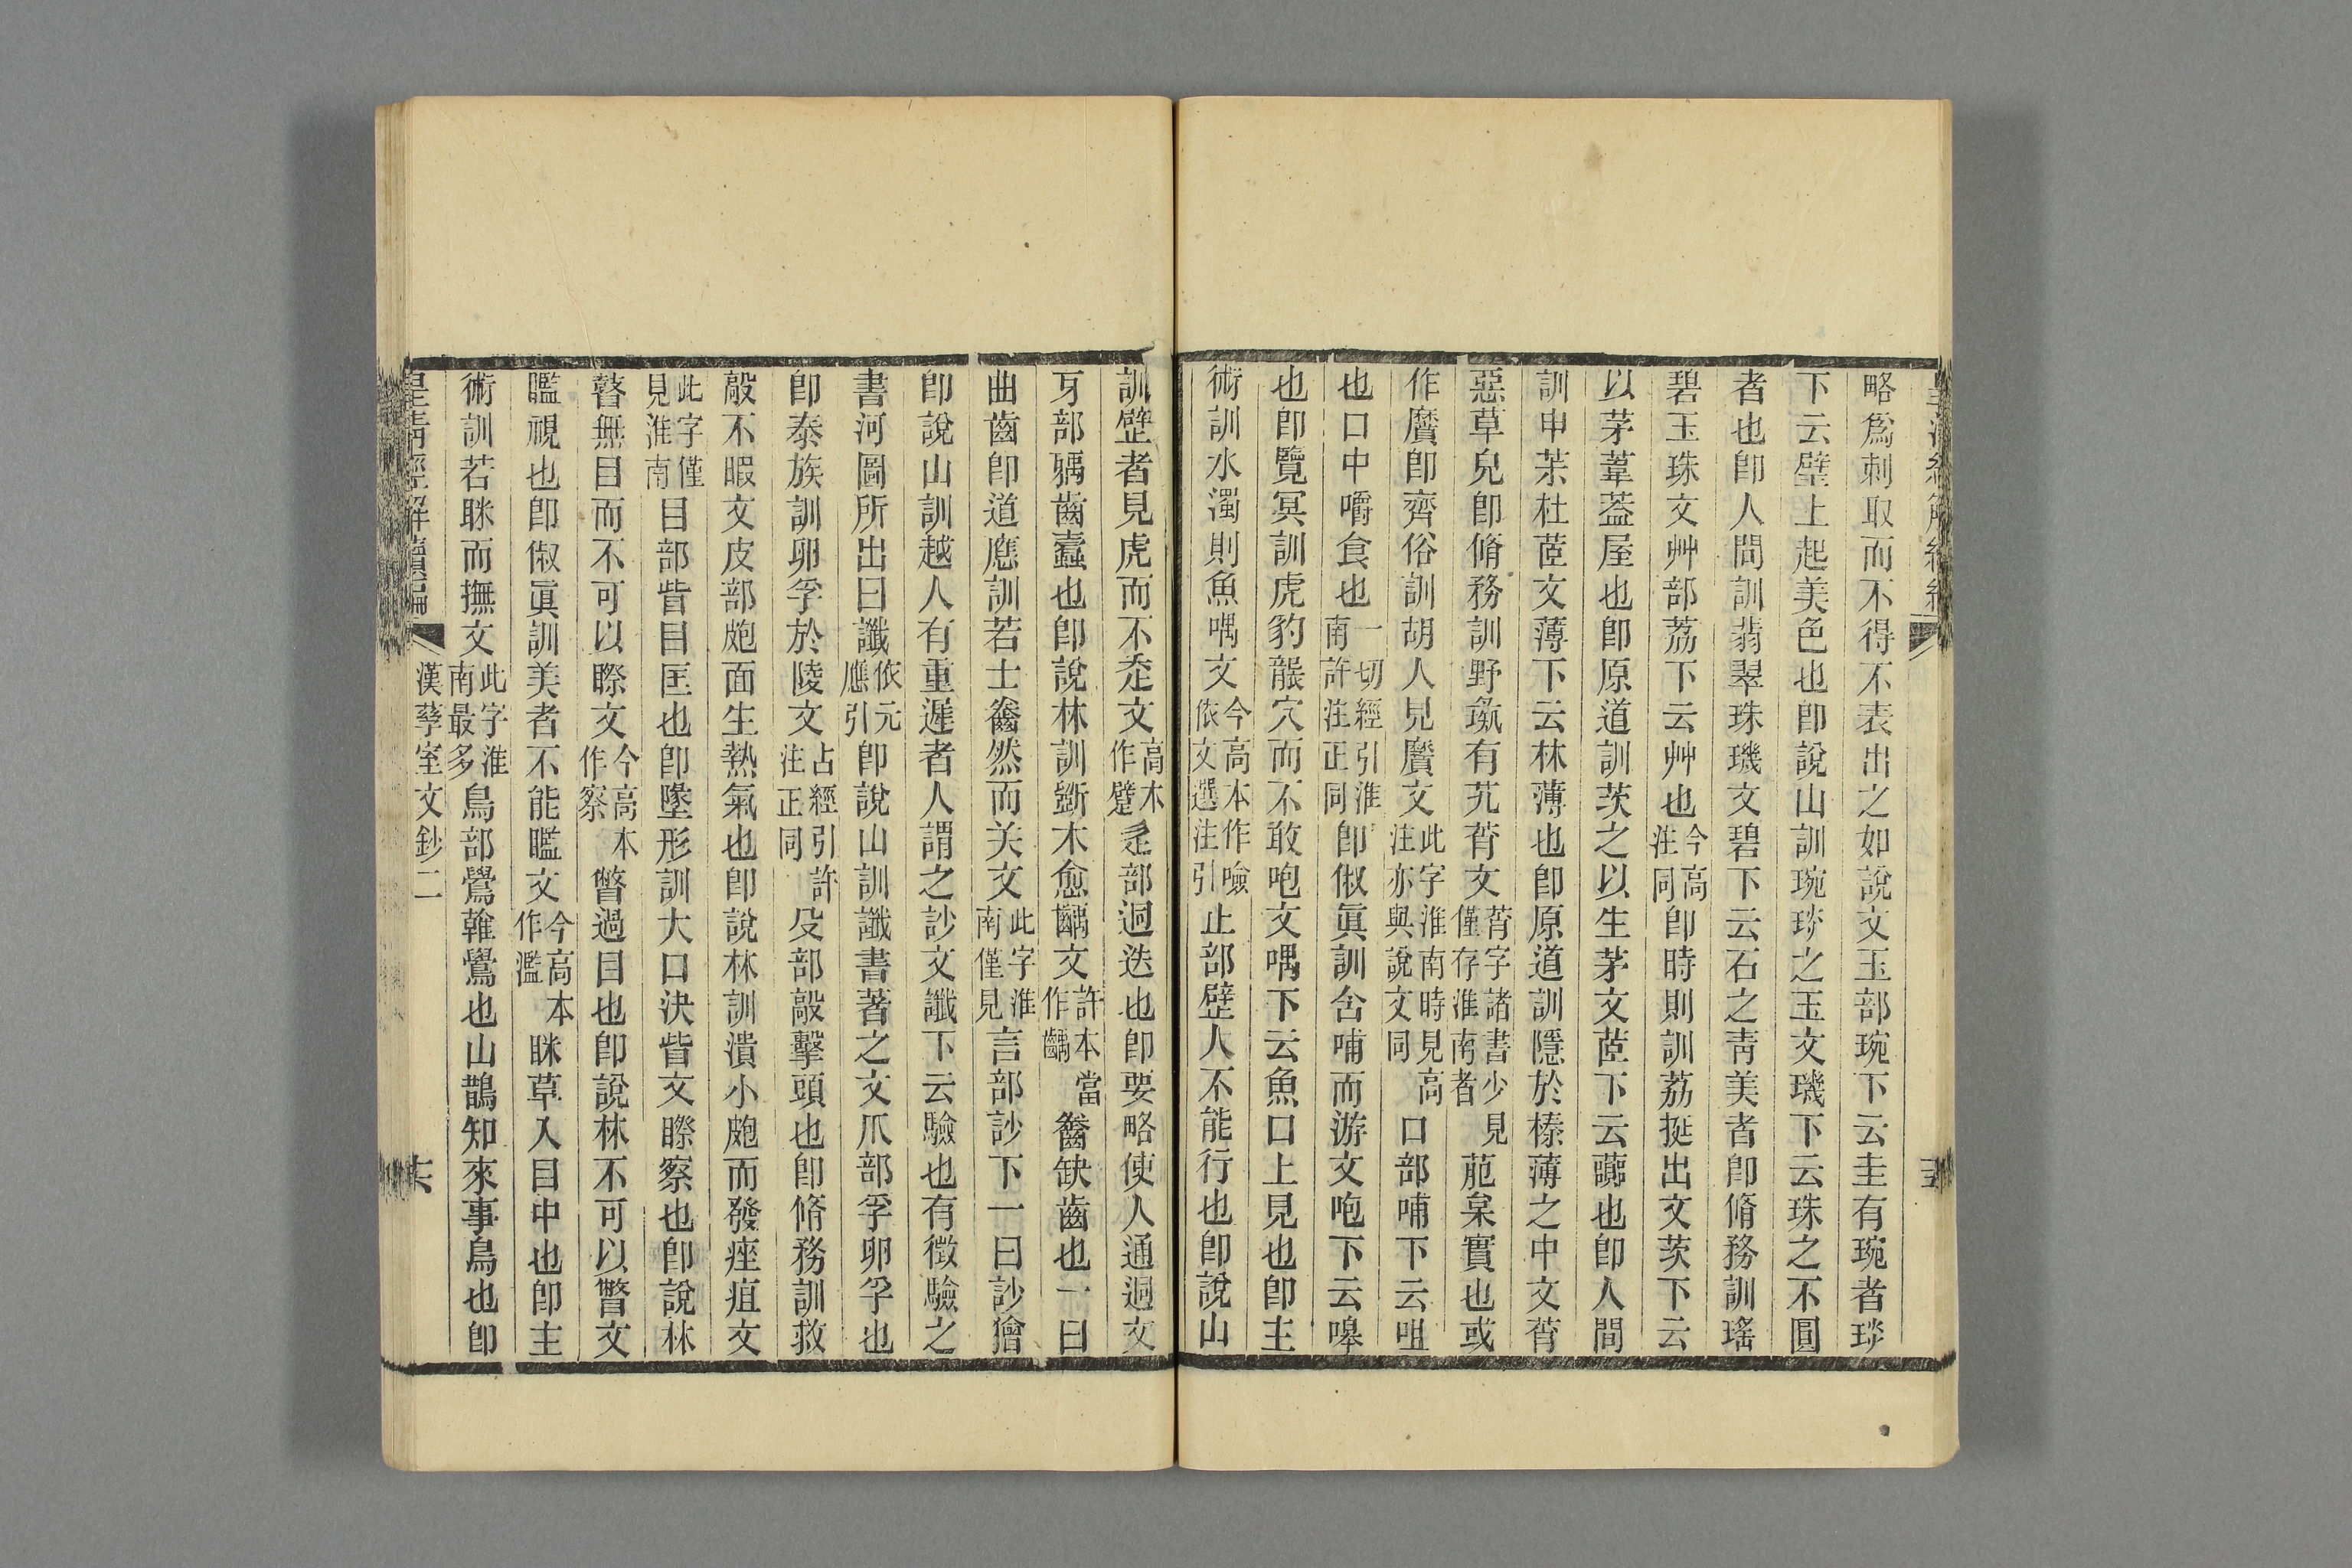 略爲刺取而不得不表出之如說文玉部琬下云圭有琬者琰
下云璧上起美色也卽說山訓琬琰之玉文璣下云珠之不圓
者也卽人間訓翡翠珠璣文碧下云石之靑美者卽脩務訓瑤
碧玉珠文艸部荔下云艸也今高注同卽時則訓荔挺出文茨下云
以茅葦葢屋也卽原道訓茨之以生茅文茞下云虈也卽人間
訓申茮杜茞文薄下云林薄也卽原道訓隱於榛薄之中文莦
惡草皃卽脩務訓野彘有艽莦文莦字諸書少見僅存淮南者萉枲實也或
作黂卽齊俗訓胡人見黂文此字淮南時見高注亦與說文同口部哺下云咀
也口中嚼食也一切經引淮南許注正同卽俶眞訓含哺而游文咆下云嗥
也卽覽冥訓虎豹襲穴而不敢咆文喁下云魚口上見也卽主
術訓水濁則魚喁文今高本作噞依文選注引止部壁人不能行也卽說山
訓壁者見虎而不走文高本作躄辵部迵迭也卽要略使人通迵文
牙部䶚齒蠹也卽說林訓斵木愈齲文許本當作䶚齤缺齒也一曰
曲齒卽道應訓若士齤然而关文此字淮南僅見言部訬下一曰訬獪
卽說山訓越人有重遲者人謂之訬文讖下云驗也有徵驗之
書河圖所出曰讖依元應引卽說山訓讖書著之文爪部孚卵孚也
卽泰族訓卵孚於陵文占經引許注正同殳部毃擊頭也卽脩務訓救
毃不暇文皮部皰面生熱氣也卽說林訓潰小皰而發痤疽文
此字僅見淮南目部眥目匡也卽墬形訓大口決眥文瞭察也卽說林
瞽無目而不可以瞭文今高本作察瞥過目也卽說林不可以瞥文
䁻視也卽俶眞訓美者不能䁻文今高本作濫眯草入目中也卽主
術訓若眯而撫文此字淮南最多鳥部鷽鶾鷽也山鵲知來事鳥也卽
皇淸經解續編
漢孶室文鈔二